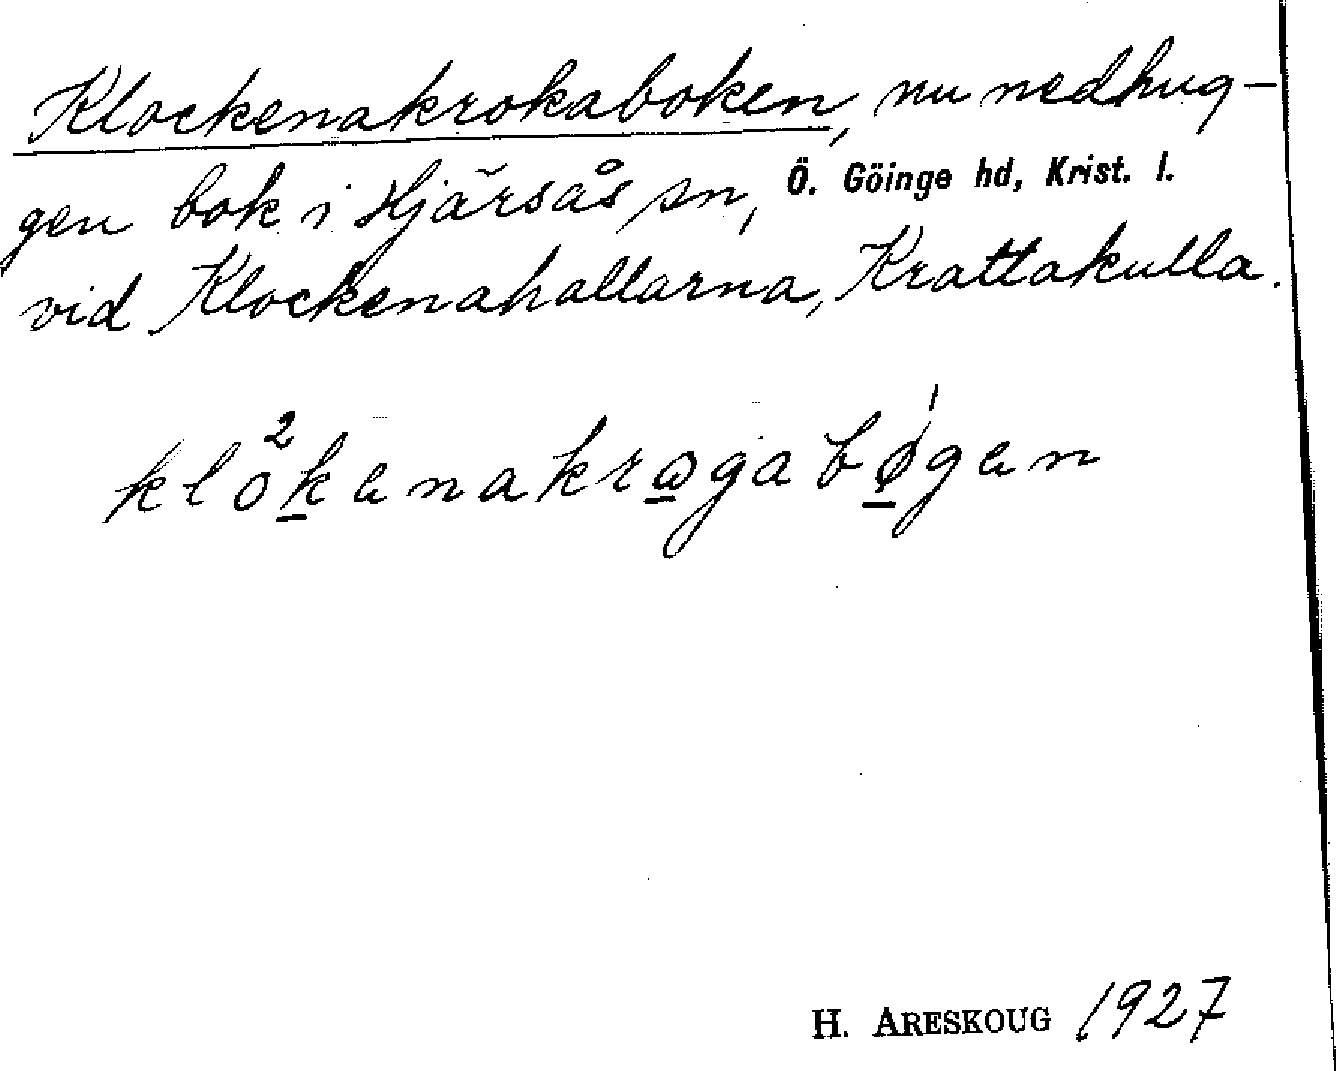 Klockenakrokaboken, nu nedhug-
gen bok i Hjärsås sn, Ö. Göinge hd, Krist. l.
vid Klockenahallarna, Krattakulla.
klo²kenakrωgabǿ̲gen
H. ARESKOUG 1927